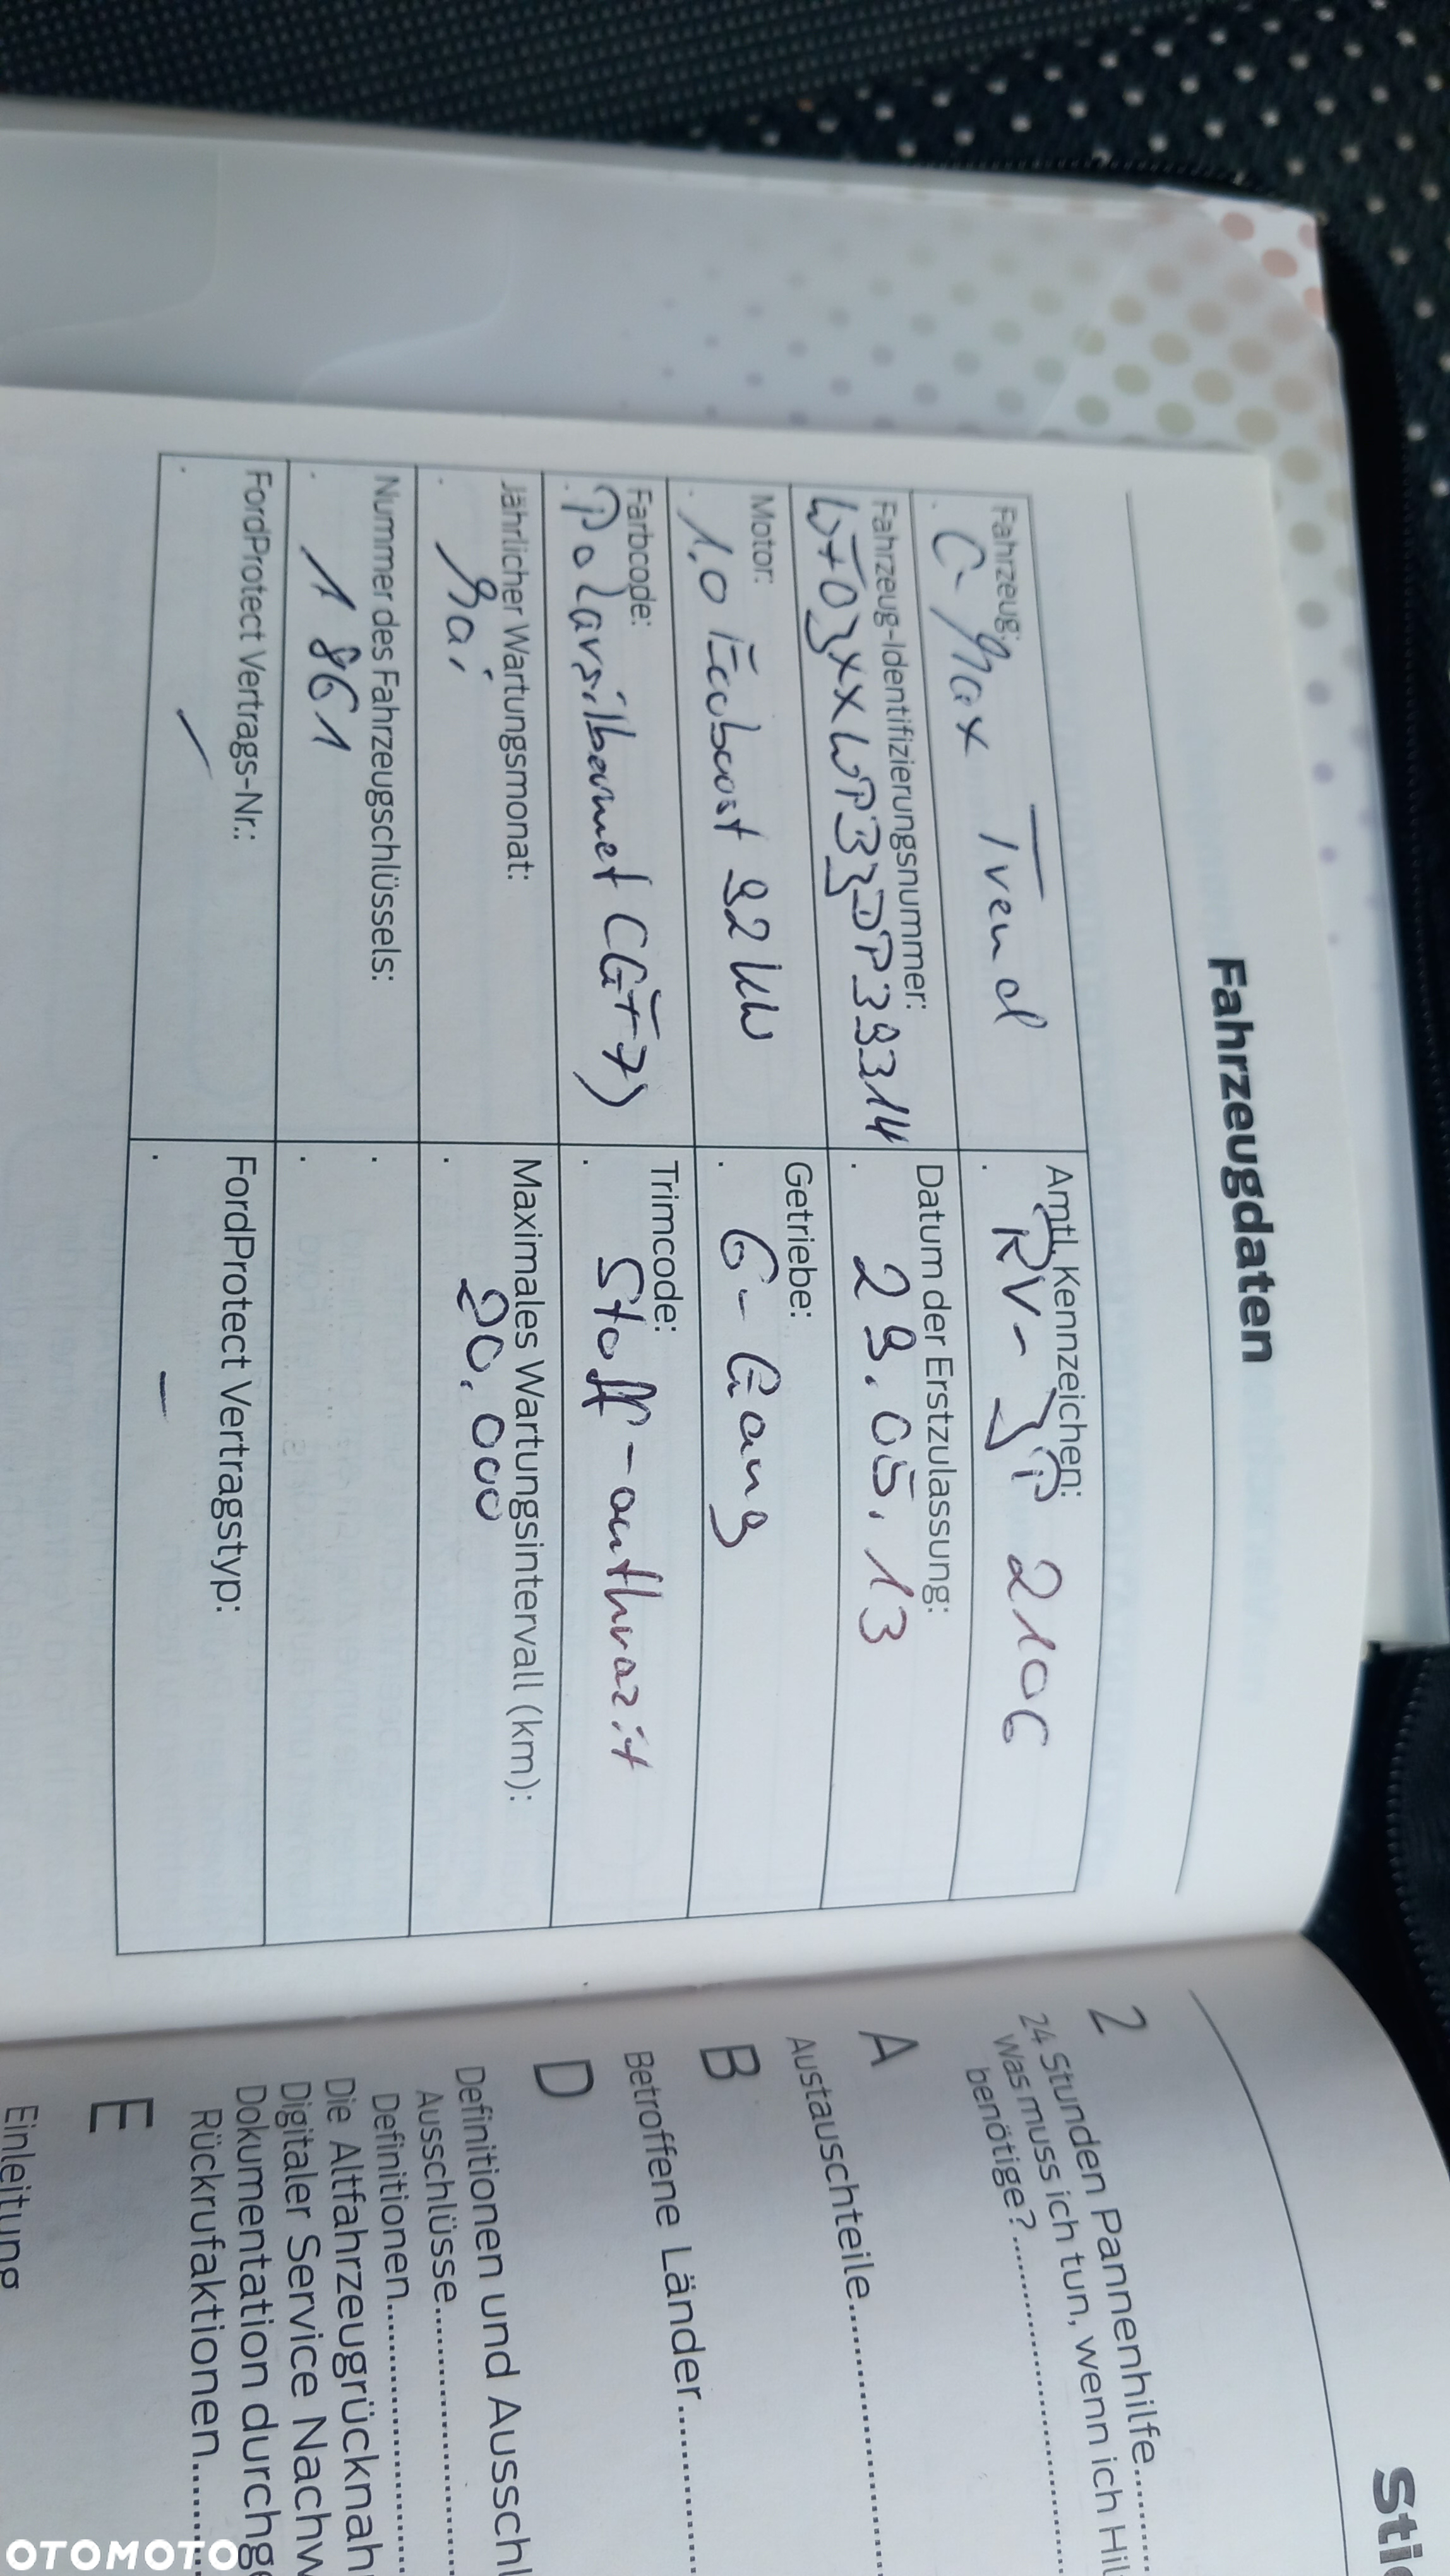 Fahrzeugdaten
Fahrzeug:
C-Max Trend
Amtl. Kennzeichen:
RV-ZP 2106
Fahrzeug-Identifizierungsnummer:
WF0ZXXWP3ZDP39314
Datum der Erstzulassung:
29.05.13
Motor:
1,0 Ecoboost 92 kW
Getriebe:
6-Gang
Farbcode:
Polarsilbermet (GF7)
Trimcode:
Stoff-anthrazit
Jährlicher Wartungsmonat:
Mai
Maximales Wartungsintervall (km):
20.000
Nummer des Fahrzeugschlüssels:
1861
FordProtect Vertrags-Nr.:
FordProtect Vertragstyp:
Stic
2
24 Stunden Pannenhilfe
Was muss ich tun, wenn ich Hil
benötige?
A
Austauschteile
B
Betroffene Länder
D
Definitionen und Ausschl
Ausschlüsse
Definitionen
Die Altfahrzeugrücknah
Digitaler Service Nachw
Dokumentation durchge
Rückrufaktionen
E
Einleitung
OTOMOTO